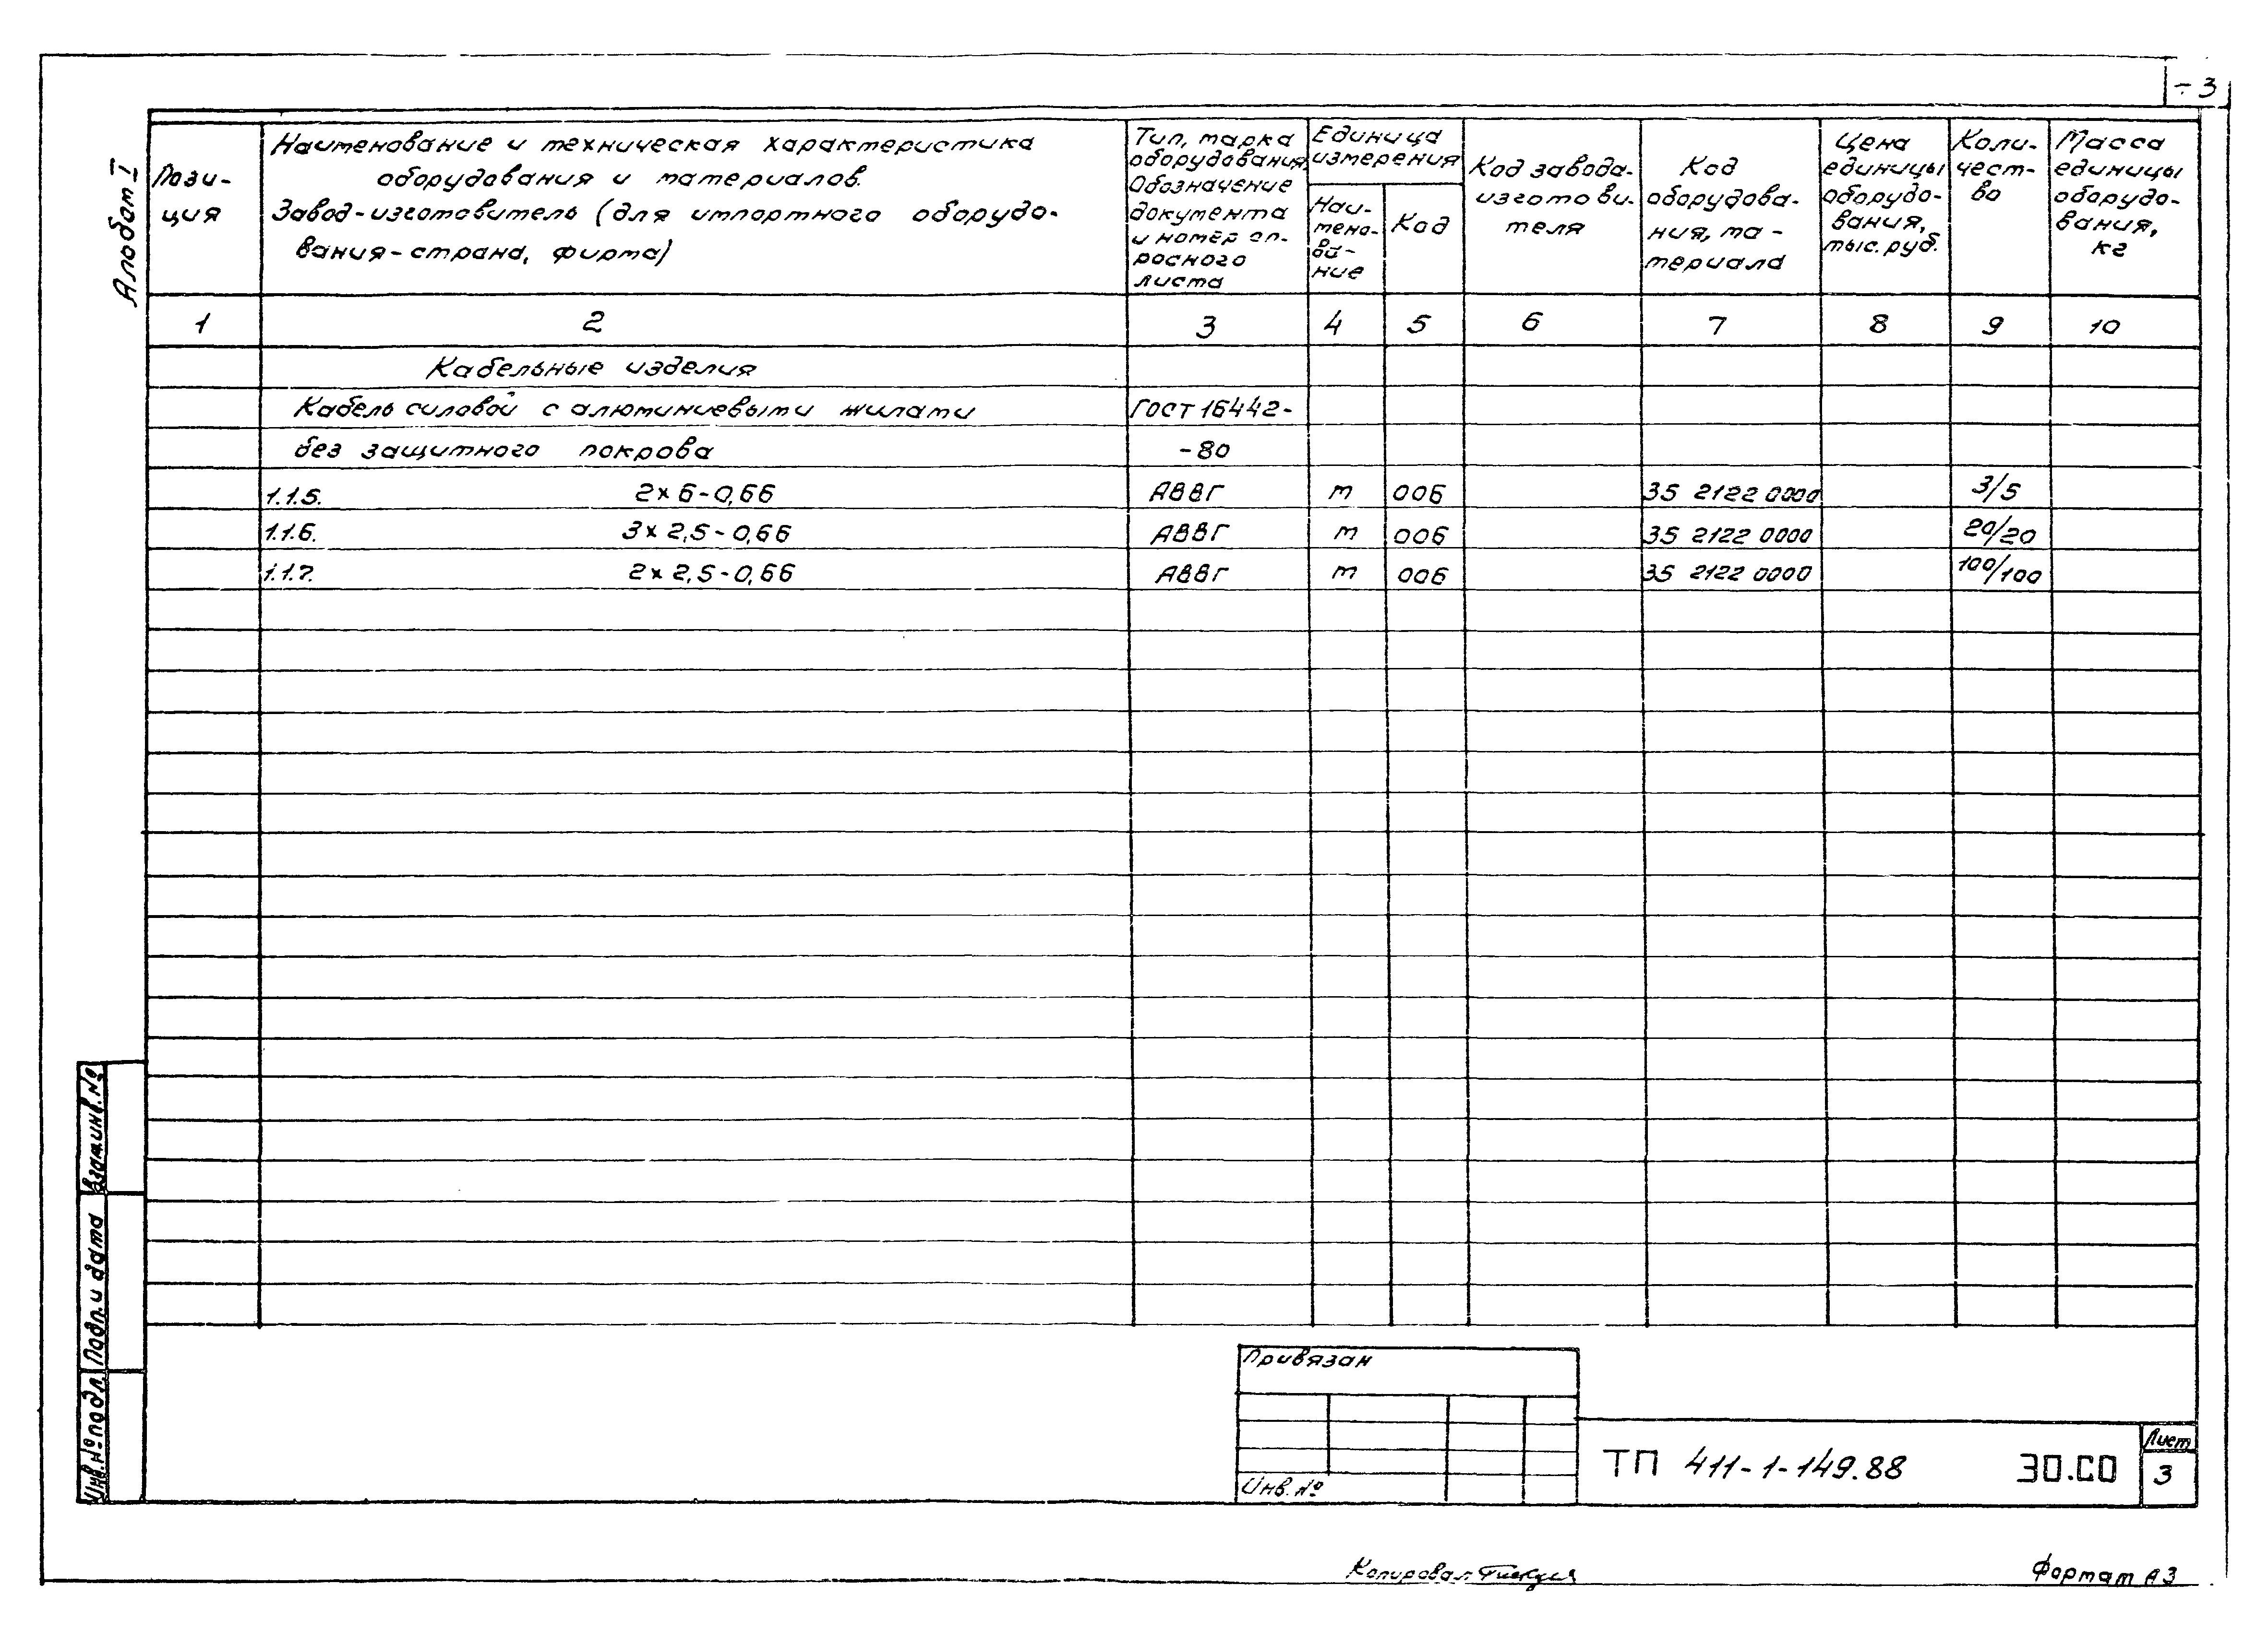 - 3
Альбом I
Пози-
ция
Наименование и техническая характеристика
оборудования и материалов.
Завод-изготовитель (для импортного оборудо-
вания-страна, фирма)
Тип, марка
оборудования,
Обозначение
документа
и номер оп-
росного
листа
Единица
измерения
Наи-
мено-
ва-
ние
Код
Код завода-
изготови-
теля
Код
оборудова-
ния, ма-
териала
Цена
единицы
оборудо-
вания,
тыс. руб.
Коли-
чест-
во
Масса
единицы
оборудо-
вания,
кг
1 2 3 4 5 6 7 8 9 10
Кабельные изделия
Кабель силовой с алюминиевыми жилами ГОСТ 16442-
без защитного покрова -80
1.1.5. 2х6-0,66 АВВГ м 006 35 2122 0000 3/5
1.1.6. 3х2,5-0,66 АВВГ м 006 35 2122 0000 20/20
1.1.7. 2х2,5-0,66 АВВГ м 006 35 2122 0000 100/100
Взам.инв.№
Подп. и дата
Инв.№подл.
Привязан
Инв. №
ТП 411-1-149.88 ЭО.СО
Лист
3
Копировал
Формат А3